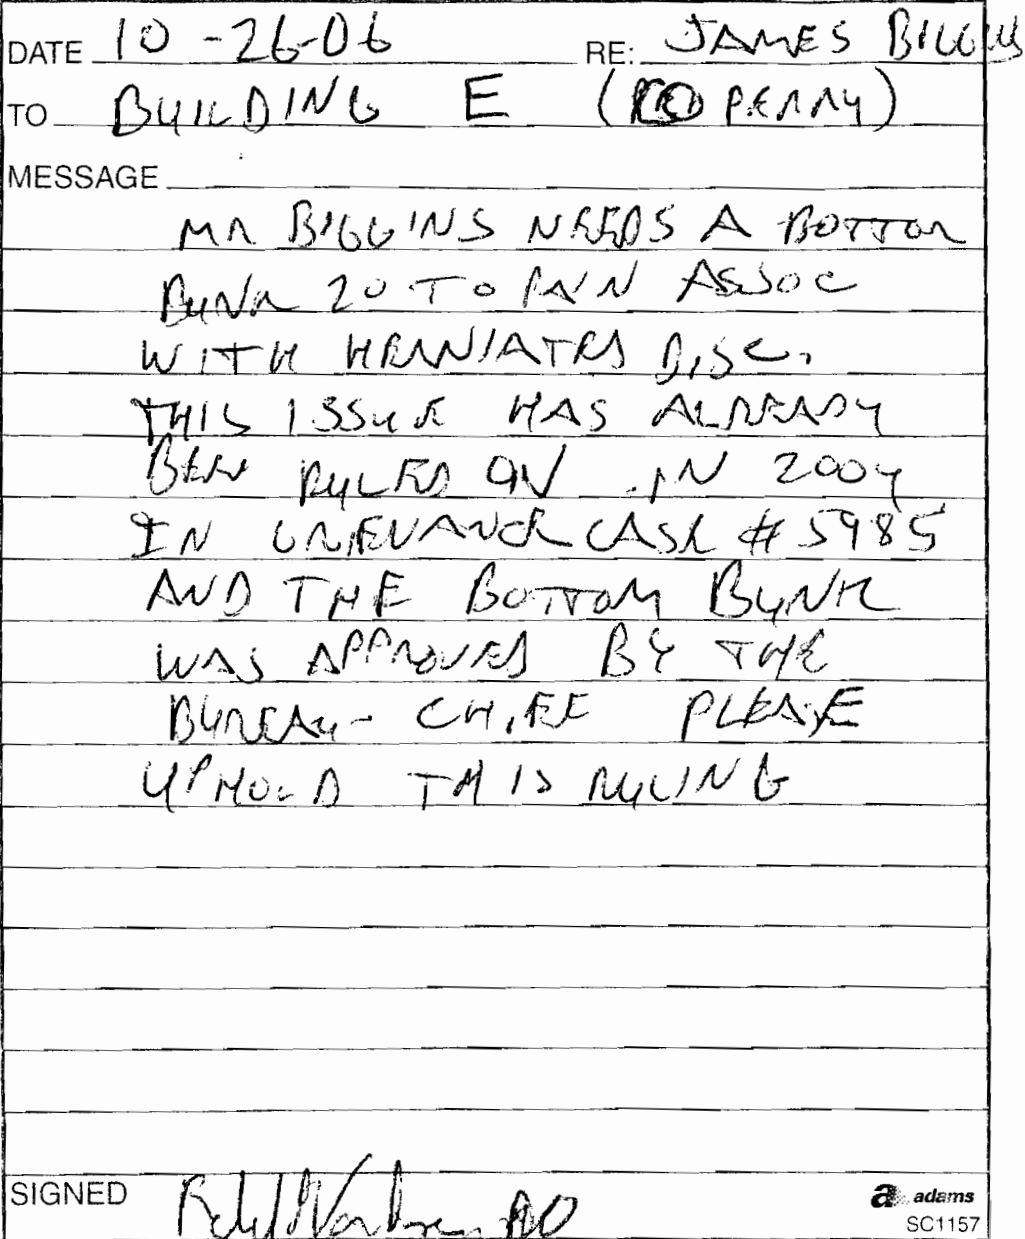 DATE 10-26-06 RE: JAMES BIGGINS
TO BUILDING E ( PERRY)
MESSAGE
MR BIGGINS NEEDS A BOTTOM
BUNK 20 TO PAIN ASSOC
WITH HERNIATED DISC.
THIS ISSUE HAS ALREADY
BEEN RULED ON IN 2004
IN GRIEVANCE CASE # 5985
AND THE BOTTOM BUNK
WAS APPROVED BY THE
BUREAU- CHIEF PLEASE
UPHOLD THIS RULING
SIGNED
a adams
SC1157